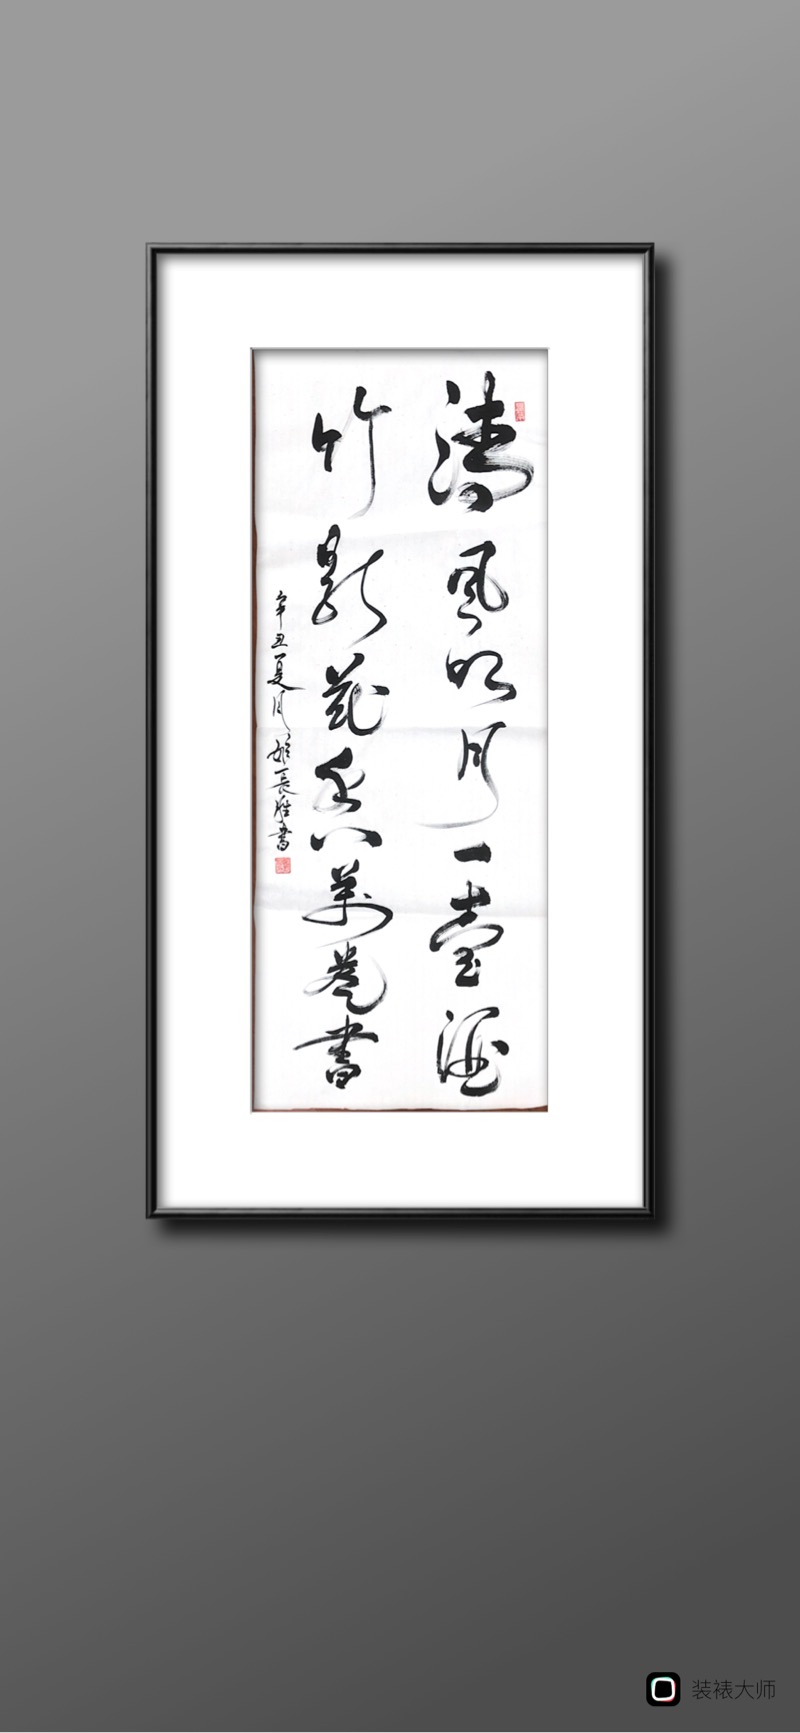 清風明月一壺酒
竹影花香萬卷書
辛丑夏月姬長勝書
装裱大师